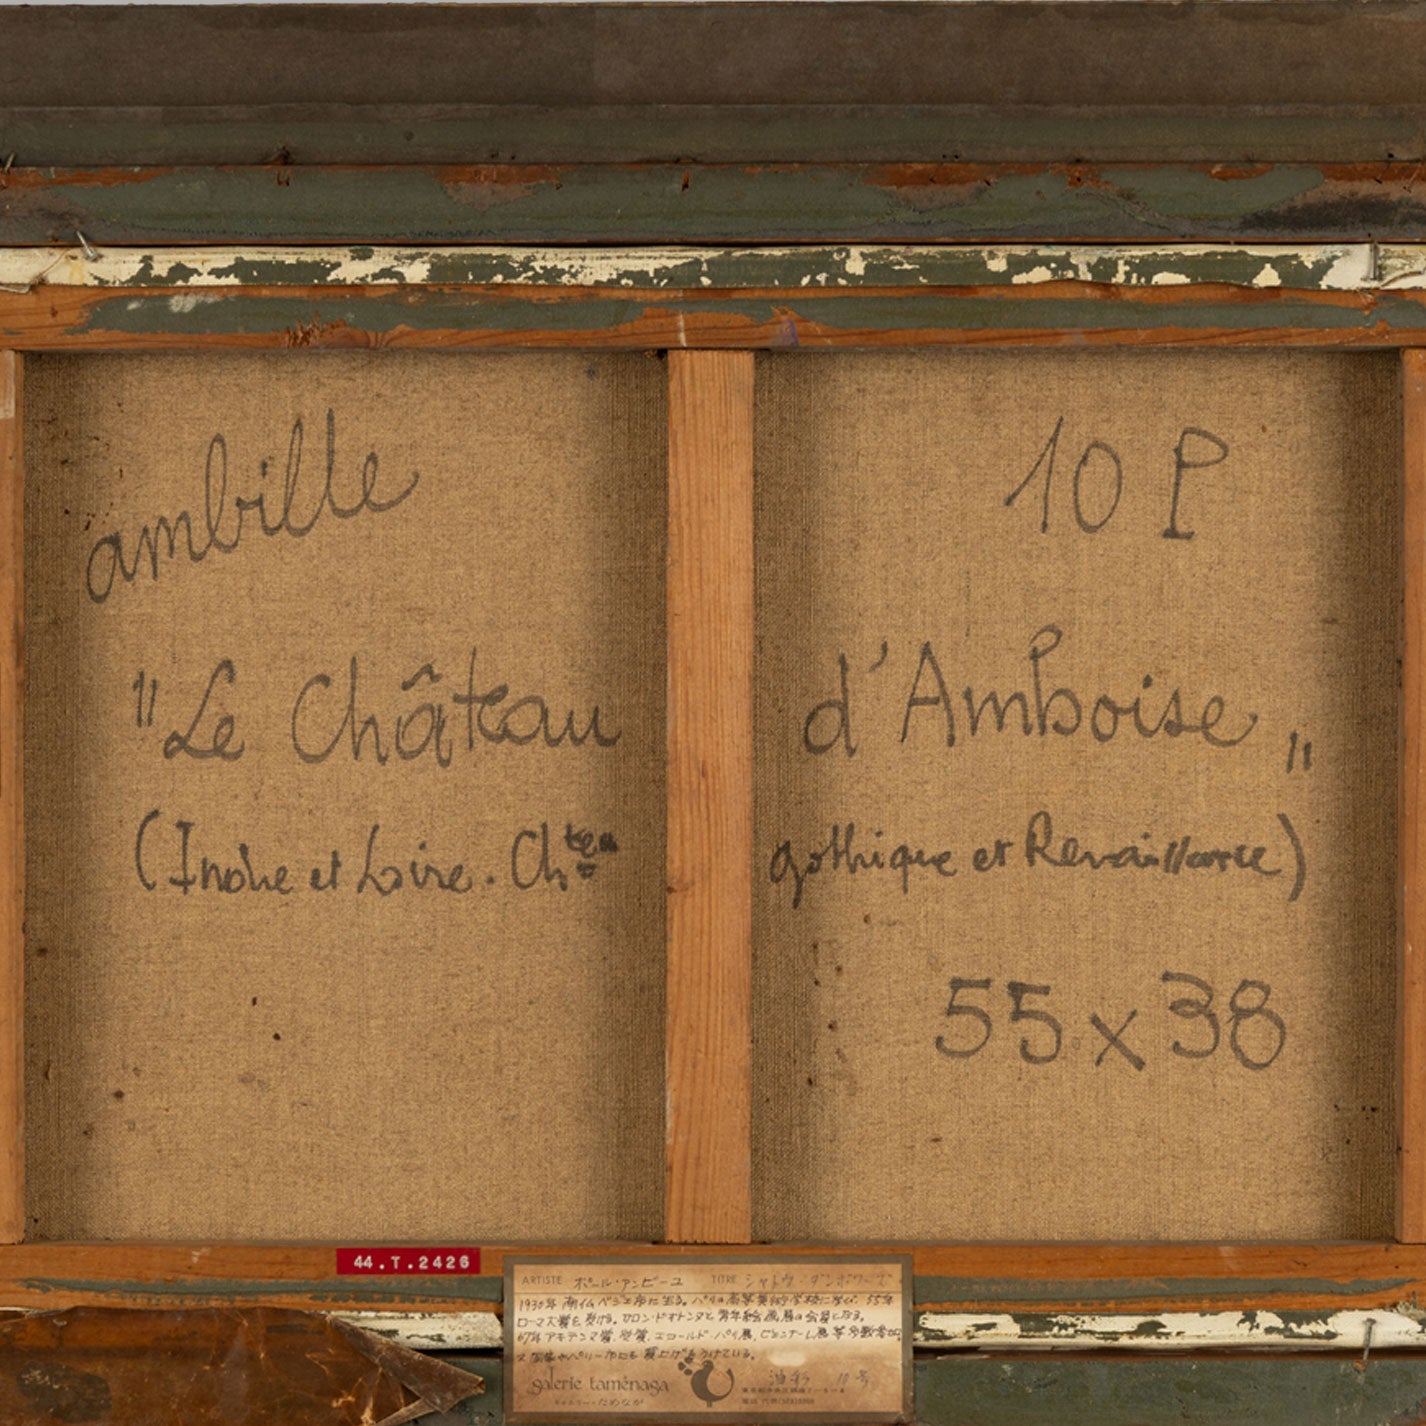 ambille 10 P
"Le Château d'Amboise"
(Indre et Loire. Ch<sup>teau</sup> gothique et Renaissance)
55 x 38
44.T.2426
ARTISTE ポール・アンビーユ TITRE シャトウ・ダンボワーズ
1930年 南仏ベジエ市に生る。パリの高等美術学校に学び、55年
ローマ大賞を受ける。サロン・ドオトンヌと青年絵画展の会員となる。
67年アキテンヌ賞受賞。エコールド・パリ展、ビエンナーレ展等多数
買上げをうけている。
galerie taménaga 油彩 10号
ギャルリー・ためなが